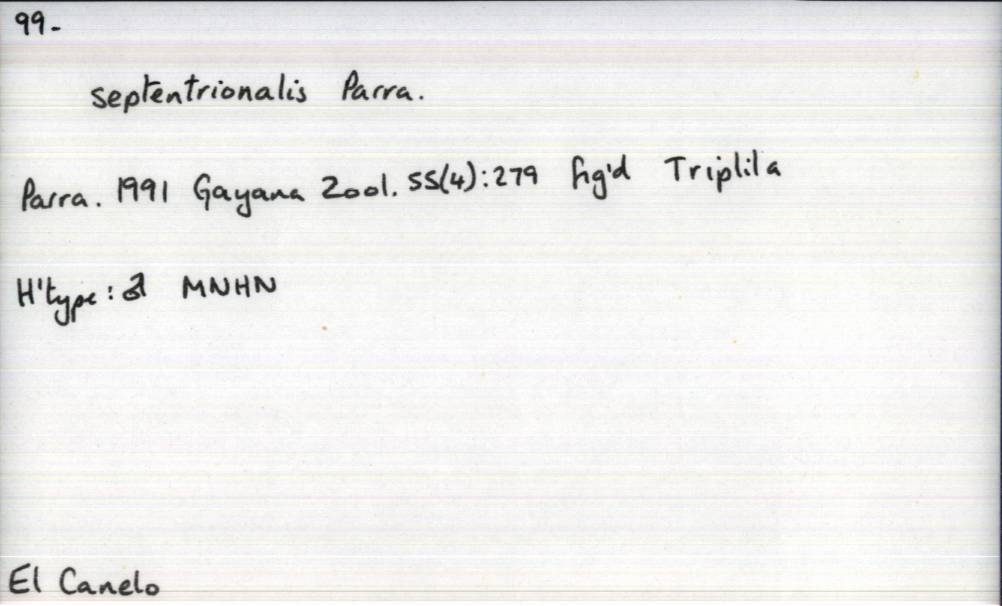 99-
septentrionalis Parra.
Parra. 1991 Gayana Zool. 55(4):279 fig'd Triplila
H'type: ♂ MNHN
El Canelo